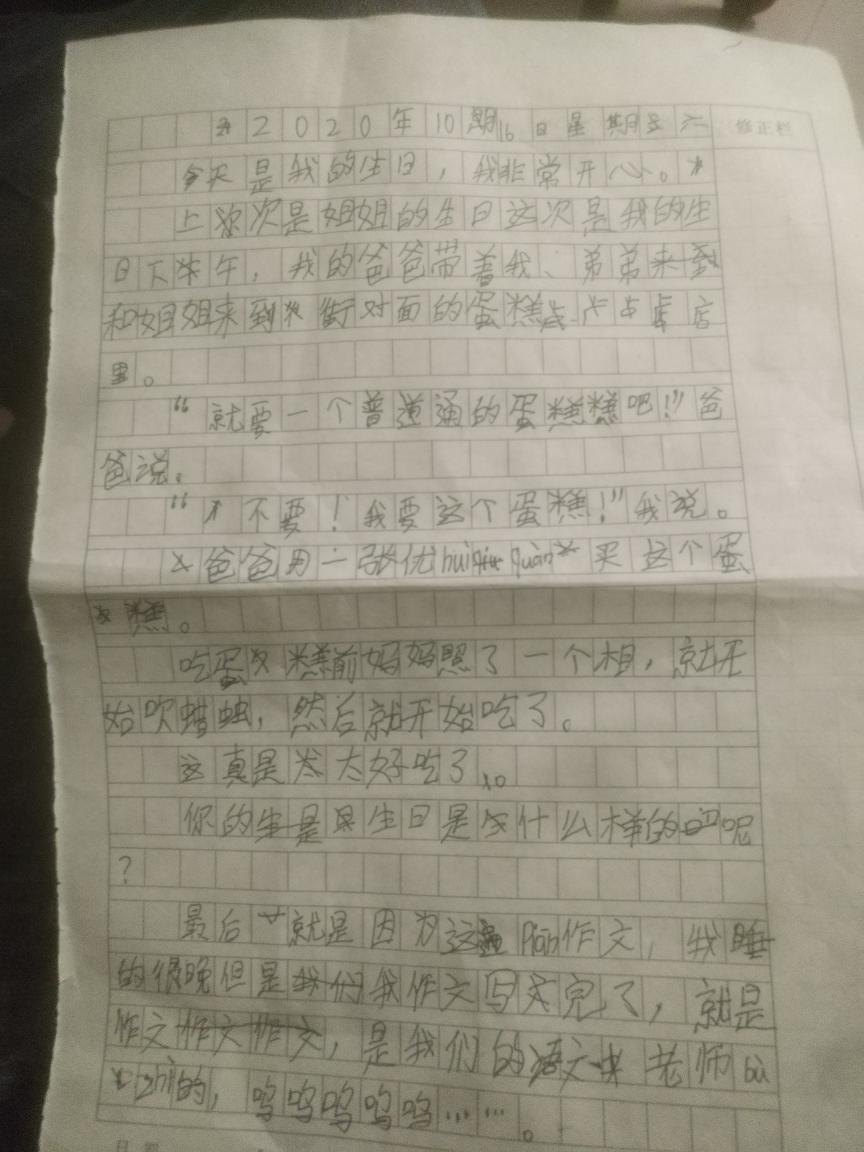 2020年10期16日星期六
修正栏
今天是我的生日，我非常开心。
上次是姐姐的生日这次是我的生
日下午，我的爸爸带着我、弟弟来到
和姐姐来到街对面的蛋糕店
里。
“就要一个普通的蛋糕糕吧！”爸
爸说。
“不要！我要这个蛋糕！”我说。
爸爸用一张优huìquàn买这个蛋
糕。
吃蛋糕前妈妈照了一个相，就开
始吹蜡烛，然后就开始吃了。
这真是太好吃了。
你的生日是什么样的呢
？
最后就是因为这piān作文，我睡
的很晚但是我作文写完了，就是
作文作文作文，是我们的语文老师bù
zhì的，呜呜呜呜呜……。
日期